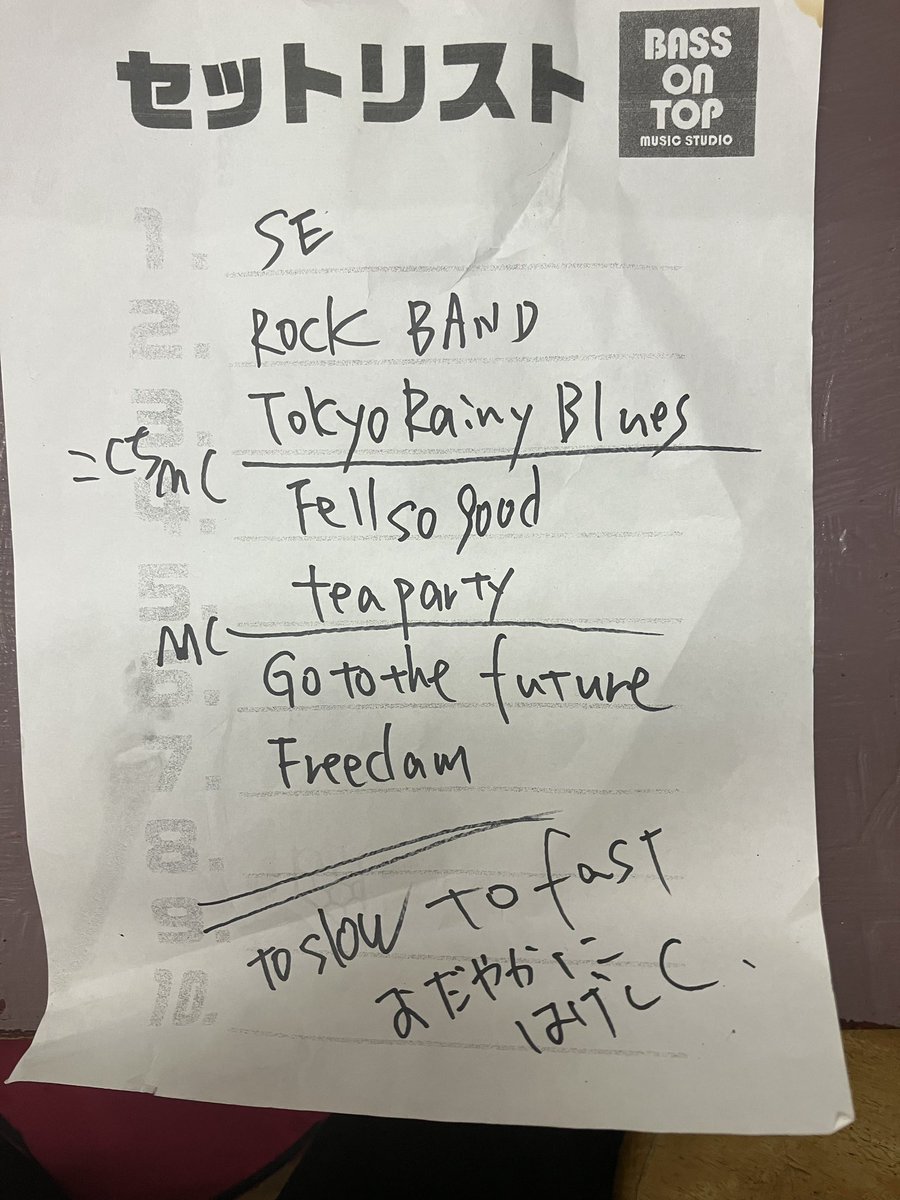 セットリスト
BASS
ON
TOP
MUSIC STUDIO
1. SE
2. ROCK BAND
3. Tokyo Rainy Blues
MC
4. Fell so good
5. tea party
MC
6. Go to the future
7. Freedam
8.
9.
10.
to slow to fast
おだやかに
はげしく、